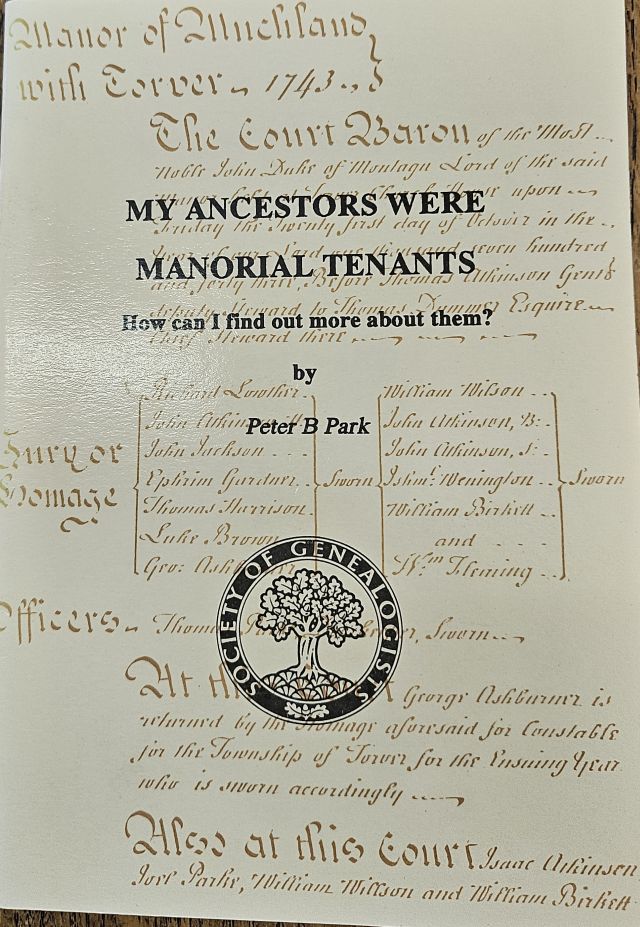 Manor of Muchland
with Torver 1743
The Court Baron of the Most
Noble John Duke of Montagu Lord of the said
upon
MY ANCESTORS WERE
Friday the Twenty first day of October in the
seven hundred
MANORIAL TENANTS
and forty three, Before Thomas Atkinson Gent
deputy Steward to Thomas Dummer Esquire
How can I find out more about them?
Chief Steward there
by
Richard Lowther William Wilson
John Atkinson, B:
Peter B Park
John Jackson John Atkinson, S:
Jury or Ephrim Gardner Sworn Wenington Sworn
Homage Thomas Harrison William Birkett
Luke Brown and
Geo: Wm Fleming
SOCIETY OF GENEALOGISTS
Officers Sworn
At George Ashburner is
returned by the Homage aforesaid for Constable
for the Township of Torver for the Ensuing Year
who is sworn accordingly
Also at this Court Isaac Atkinson
Joel Parke, William Willson and William Birkett